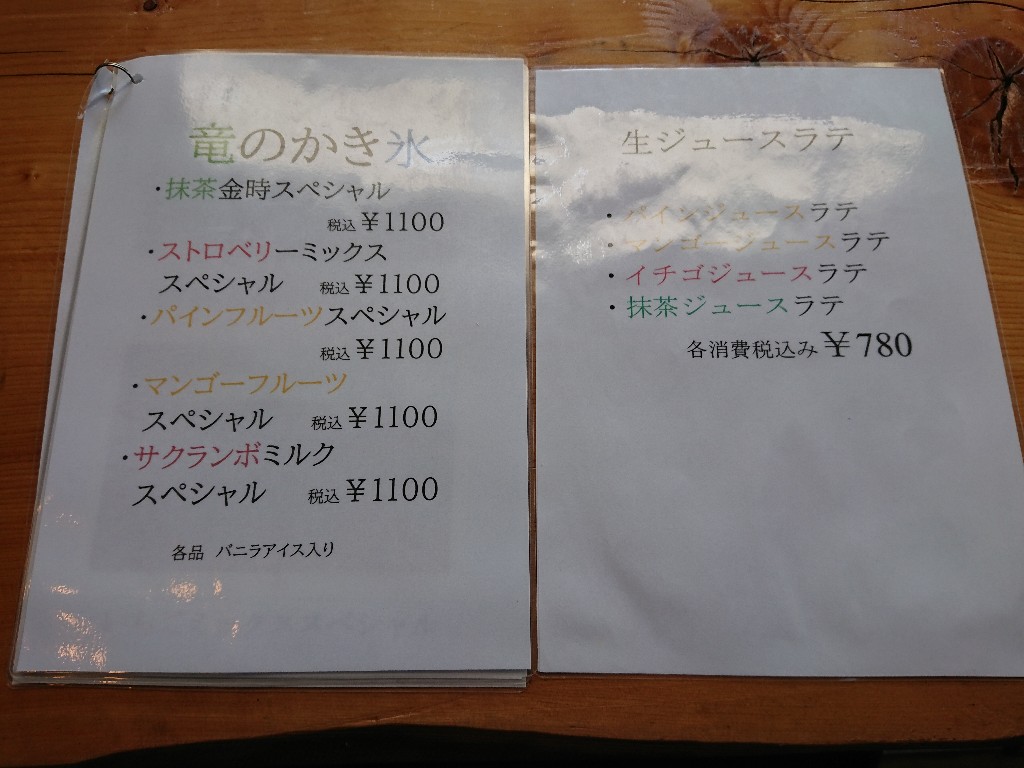 竜のかき氷
・抹茶金時スペシャル
税込 ¥1100
・ストロベリーミックス
スペシャル 税込 ¥1100
・パインフルーツスペシャル
税込 ¥1100
・マンゴーフルーツ
スペシャル 税込 ¥1100
・サクランボミルク
スペシャル 税込 ¥1100
各品 バニラアイス入り
生ジュースラテ
・パインジュースラテ
・マンゴージュースラテ
・イチゴジュースラテ
・抹茶ジュースラテ
各消費税込み ¥780